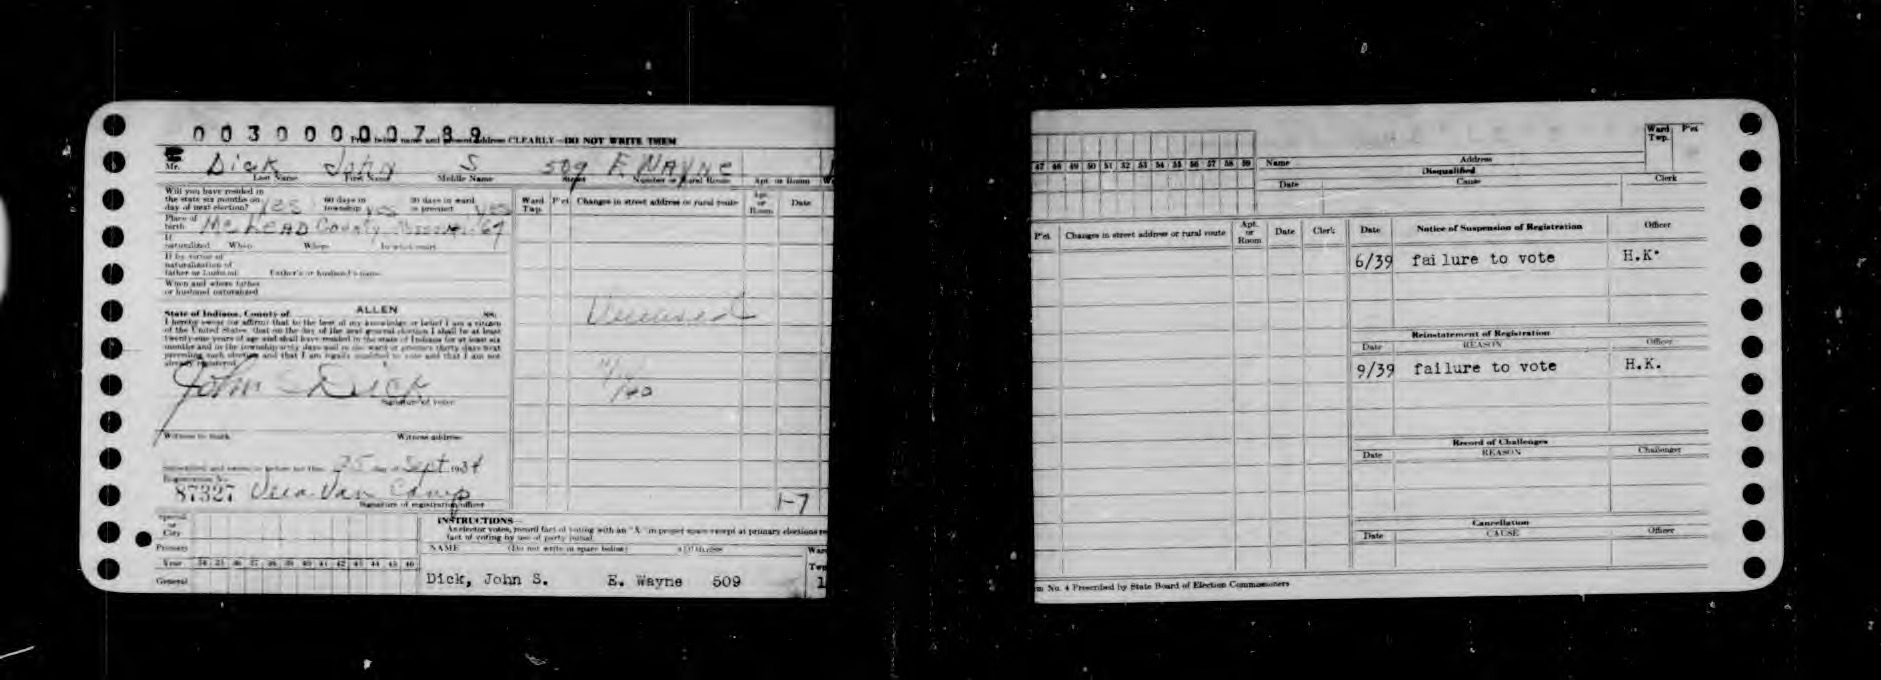 003000000789
Print below name and present address CLEARLY—DO NOT WRITE THEM
Mr. Dick John S 509 E WAYNE
Last Name First Name Middle Name Street Number or Rural Route Apt. or Room
Will you have resided in
the state six months on
day of next election? Yes 60 days in township yes 30 days in ward or precinct yes
Place of
birth County
If
naturalized When Where In what court
If by virtue of
naturalization of
father or husband Father's or husband's name
When and where father
or husband naturalized
State of Indiana, County of ALLEN SS:
I hereby swear (or affirm) that to the best of my knowledge or belief I am a citizen
of the United States, that on the day of the next general election I shall be at least
twenty-one years of age and shall have resided in the state of Indiana for at least six
months and in the township sixty days and in the ward or precinct thirty days next
preceding such election and that I am legally qualified to vote and that I am not
already registered.
John S Dick
Signature of voter
Witness to mark Witness address
Subscribed and sworn to before me this 25 day of Sept 1934
Registration No.
87327 Van Camp
Signature of registration officer
Ward Twp. P'ct Changes in street address or rural route Apt. or Room Date
Deceased
1-7
Special
or
City
Primary
Year 34 35 36 37 38 39 40 41 42 43 44 45 46
General
INSTRUCTIONS—
As elector votes, record fact of voting with an "X" in proper space except at primary elections
fact of voting by use of party initial.
NAME (Do not write in space below) ADDRESS
Dick, John S. E. Wayne 509
47 48 49 50 51 52 53 54 55 56 57 58 59
Name Address Ward Twp. P'ct
Disqualified
Date Cause Clerk
P'ct Changes in street address or rural route Apt. or Room Date Clerk
Date Notice of Suspension of Registration Officer
6/39 failure to vote H.K.
Reinstatement of Registration
Date REASON Officer
9/39 failure to vote H.K.
Record of Challenges
Date REASON Challenger
Cancellation
Date CAUSE Officer
No. 4 Prescribed by State Board of Election Commissioners